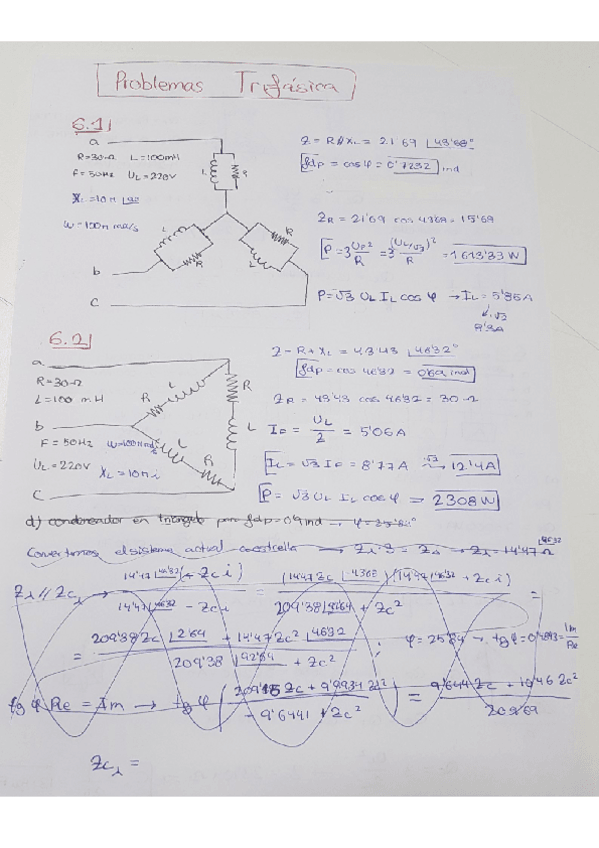 Problemas Trifásica
6.1|
a
R=30Ω L=100mH
F=50Hz UL=220V
XL=10π ⌊90
ω=100π rad/s
L R
L R
R L
b
c
Z = R//XL = 21'69 ⌊43'68°
fdp = cos φ = 0'7232 ind
ZR = 21'69 cos 43'68 = 15'69
P = 3 UP²/R = 3 (UL/√3)²/R = 1613'33 W
P = √3 UL IL cos φ → IL = 5'85A
↓·√3
6.2|
a
R=30Ω
L=100 mH
b
F=50Hz ω=100π rad/s
UL=220V XL=10π i
c
R L
R
L
L
R
Z = R+XL = 43'43 ⌊46'32°
fdp = cos 46'32 = 0'69 ind
ZR = 43'43 cos 46'32 = 30Ω
IP = UL/Z = 5'06A
IL = √3 IP = 8'77A √2→ 12'4A
P = √3 UL IL cos φ = 2308 W
d) condensador en triangulo para fdp=0'9 ind → φ=25'84°
Convertimos el sistema actual a estrella → Zλ·3 = ZΔ → Zλ=14'47 ⌊46'32 Ω
Zλ // Zcλ → 14'47 ⌊46'32 (-Zc i) / 14'47 ⌊46'32 - Zc i =
= 209'38 Zc ⌊2'64 + 14'47 Zc² ⌊46'32 / 209'38 ⌊92'64 + Zc² ; φ=25'84 → tg φ=0'4843= Im/Re
tg φ Re = Im → tg φ
Zcλ =